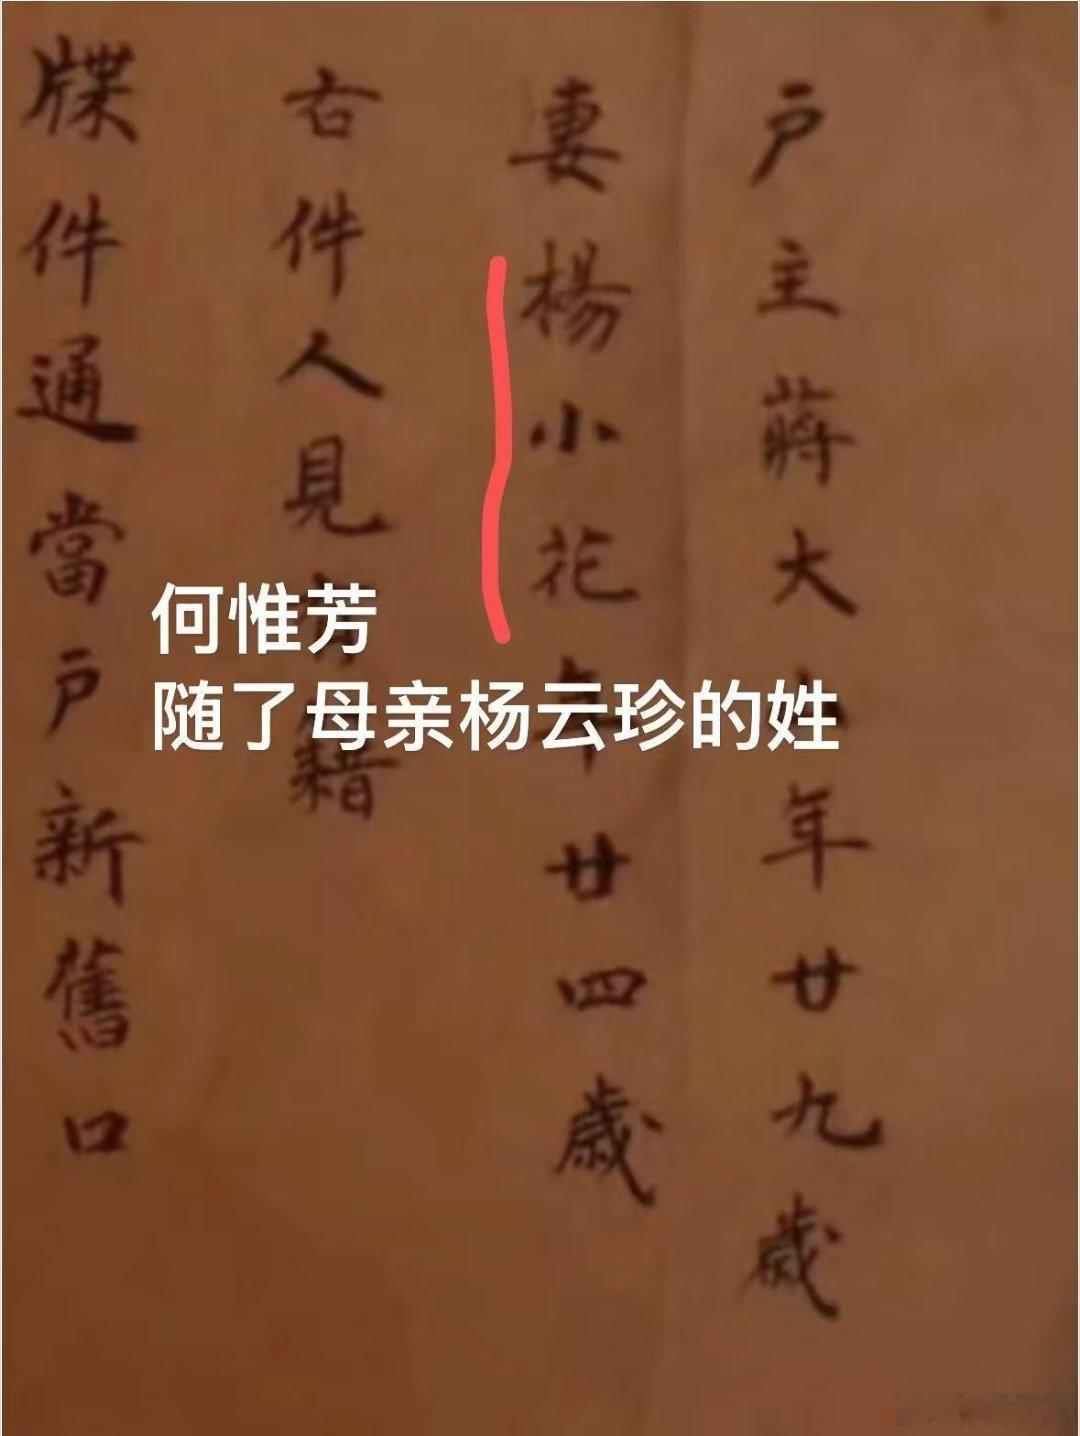 户主蔣大 年廿九歲
妻楊小花年廿四歲
右件人見 籍
牒件通當户新舊口
何惟芳
随了母亲杨云珍的姓